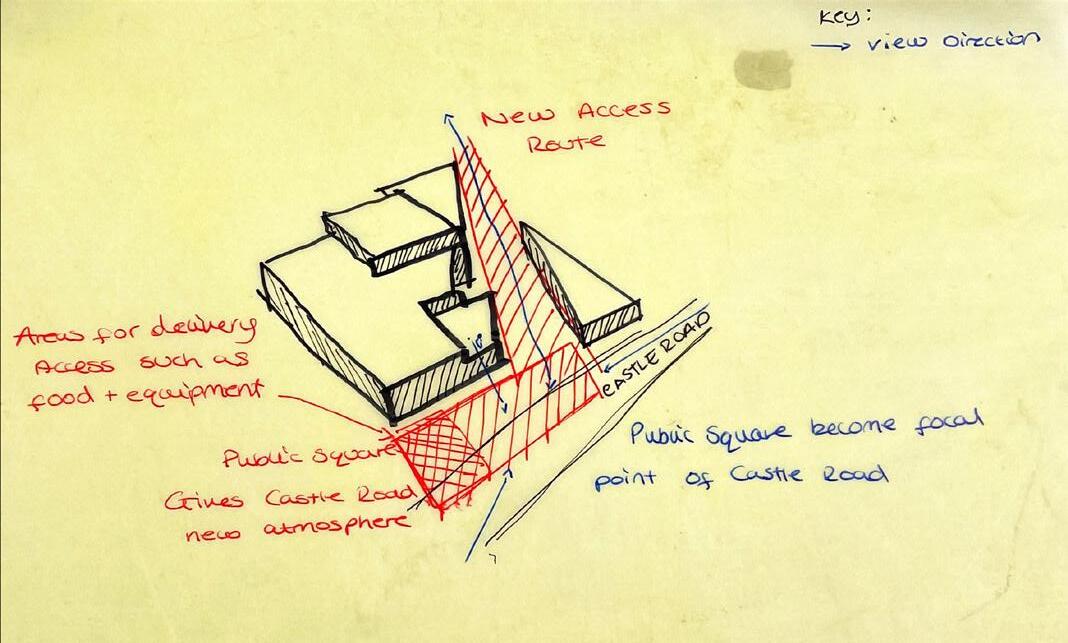 Key:
→ view Direction
New Access
Route
Areas for delivery
Access such as
food + equipment
CASTLE ROAD
Public Square
Gives Castle Road
new atmosphere
Public Square become focal
point of Castle Road